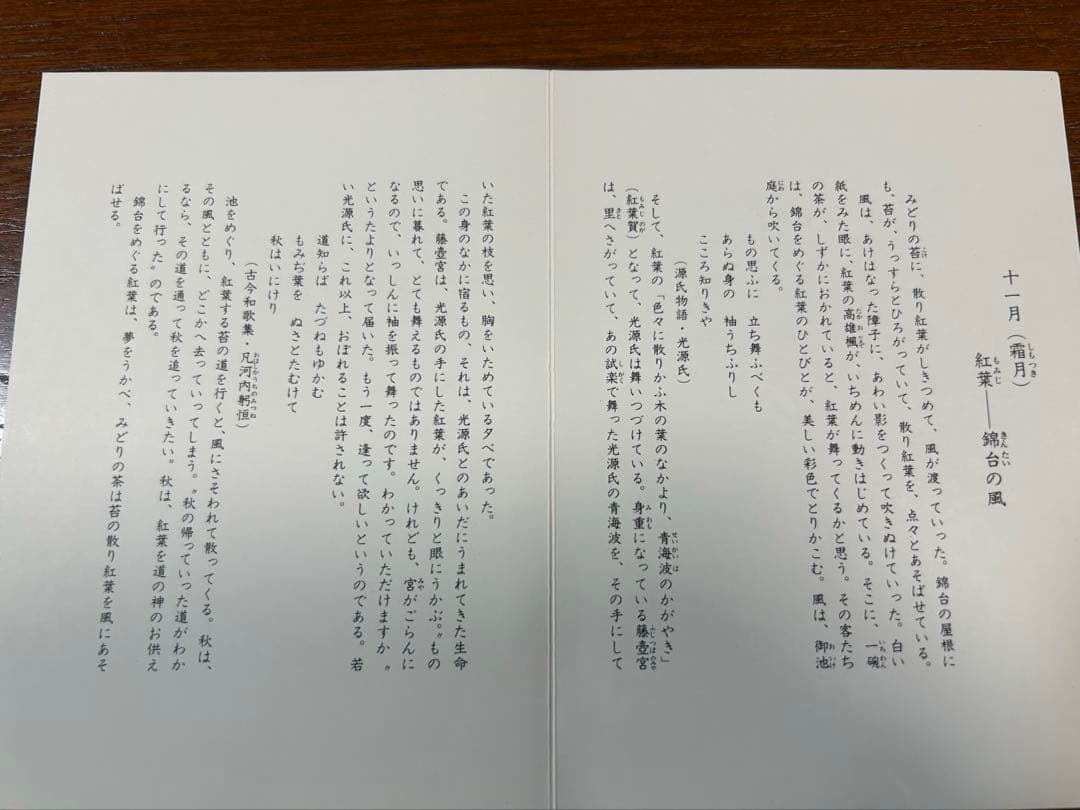 十一月（霜月）
紅葉――錦台の風
みどりの苔に、散り紅葉がしきつめて、風が渡っていった。錦台の屋根に
も、苔が、うっすらとひろがっていて、散り紅葉を、点々とあそばせている。
風は、あけはなった障子に、あわい影をつくって吹きぬけていった。白い
紙をみた眼に、紅葉の高雄楓が、いちめんに動きはじめている。そこに、一碗
の茶が、しずかにおかれていると、紅葉が舞ってくるかと思う。その客たち
は、錦台をめぐる紅葉のひとびとが、美しい彩色でとりかこむ。風は、御池
庭から吹いてくる。
もの思ふに　立ち舞ふべくも
あらぬ身の　袖うちふりし
こころ知りきや
（源氏物語・光源氏）
そして、紅葉の「色々に散りかふ木の葉のなかより、青海波のかがやき」
（紅葉賀）となって、光源氏は舞いつづけている。身重になっている藤壺宮
は、里へさがっていて、あの試楽で舞った光源氏の青海波を、その手にして
いた紅葉の枝を思い、胸をいためている夕べであった。
この身のなかに宿るもの、それは、光源氏とのあいだにうまれてきた生命
である。藤壺宮は、光源氏の手にした紅葉が、くっきりと眼にうかぶ。〝もの
思いに暮れて、とても舞えるものではありません。けれども、宮がごらんに
なるので、いっしんに袖を振って舞ったのです。わかっていただけますか〟
というたよりとなって届いた。もう一度、逢って欲しいというのである。若
い光源氏に、これ以上、おぼれることは許されない。
道知らば　たづねもゆかむ
もみぢ葉を　ぬさとたむけて
秋はいにけり
（古今和歌集・凡河内躬恒）
池をめぐり、紅葉する苔の道を行くと、風にさそわれて散ってくる。秋は、
その風とともに、どこかへ去っていってしまう。〝秋の帰っていった道がわか
るなら、その道を通って秋を追っていきたい。秋は、紅葉を道の神のお供え
にして行った〟のである。
錦台をめぐる紅葉は、夢をうかべ、みどりの茶は苔の散り紅葉を風にあそ
ばせる。